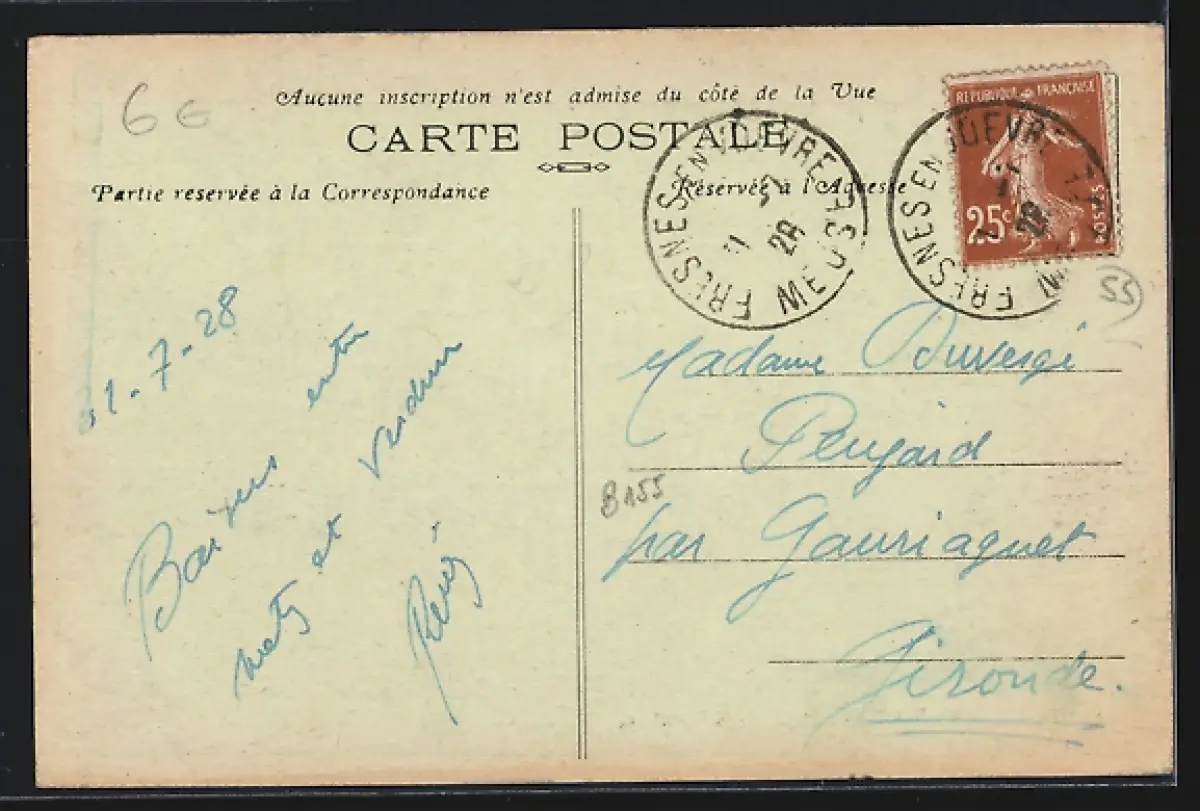 6 G
Aucune inscription n'est admise du côté de la Vue
CARTE POSTALE
Partie reservée à la Correspondance
Réservée à l'Adresse
REPUBLIQUE FRANÇAISE
25c
POSTES
FRESNES EN WOEVRE MEUSE
11 7 28
FRESNES EN WOEVRE
28
55
1-7-28
Baisers entre
Metz et Verdun
René
Madame Duvergé
Peujard
B155
par Gauriaguet
Gironde.